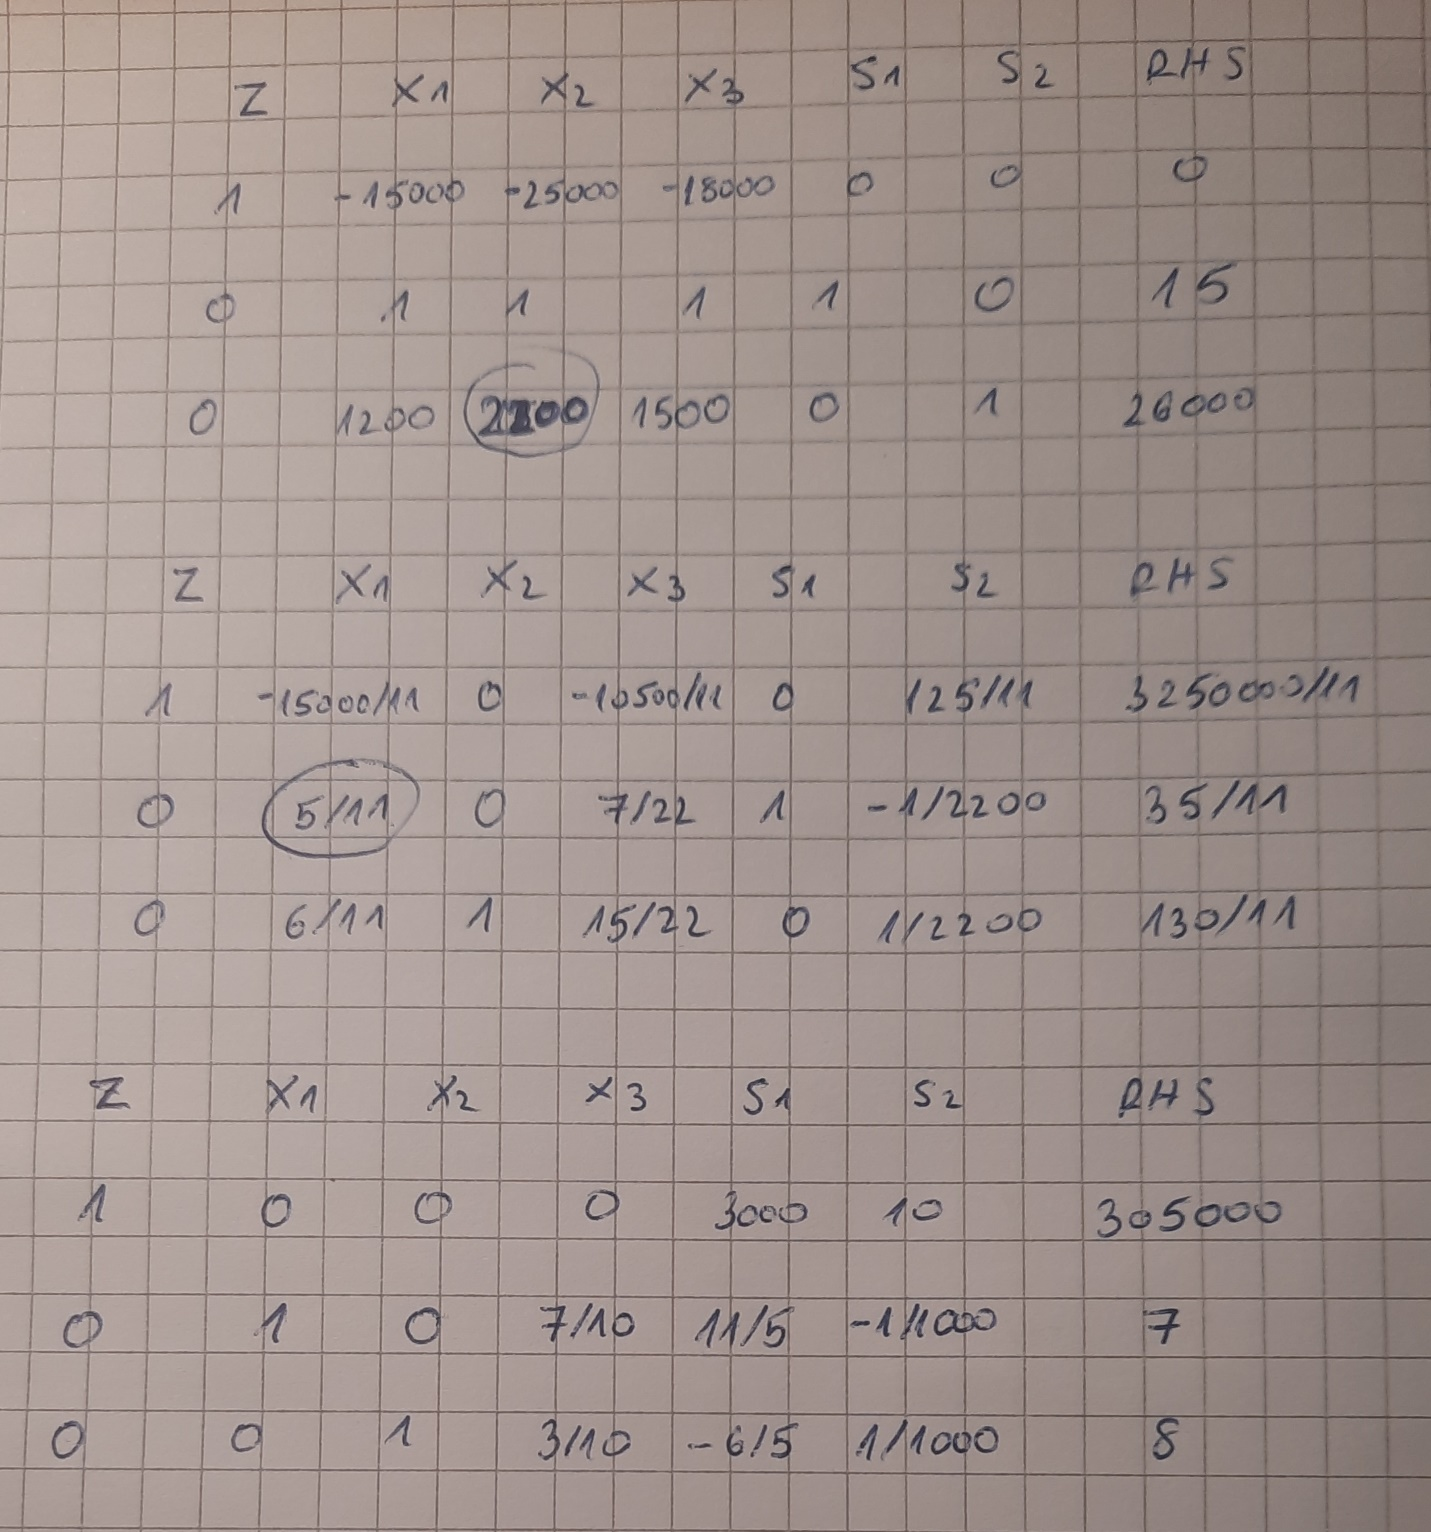 Z X1 X2 X3 S1 S2 RHS
1 -15000 -25000 -18000 0 0 0
0 1 1 1 1 0 15
0 1200 2200 1500 0 1 26000
Z X1 X2 X3 S1 S2 RHS
1 -15000/11 0 -10500/11 0 125/11 3250000/11
0 5/11 0 7/22 1 -1/2200 35/11
0 6/11 1 15/22 0 1/2200 130/11
Z X1 X2 X3 S1 S2 RHS
1 0 0 0 3000 10 305000
0 1 0 7/10 11/5 -1/1000 7
0 0 1 3/10 -6/5 1/1000 8